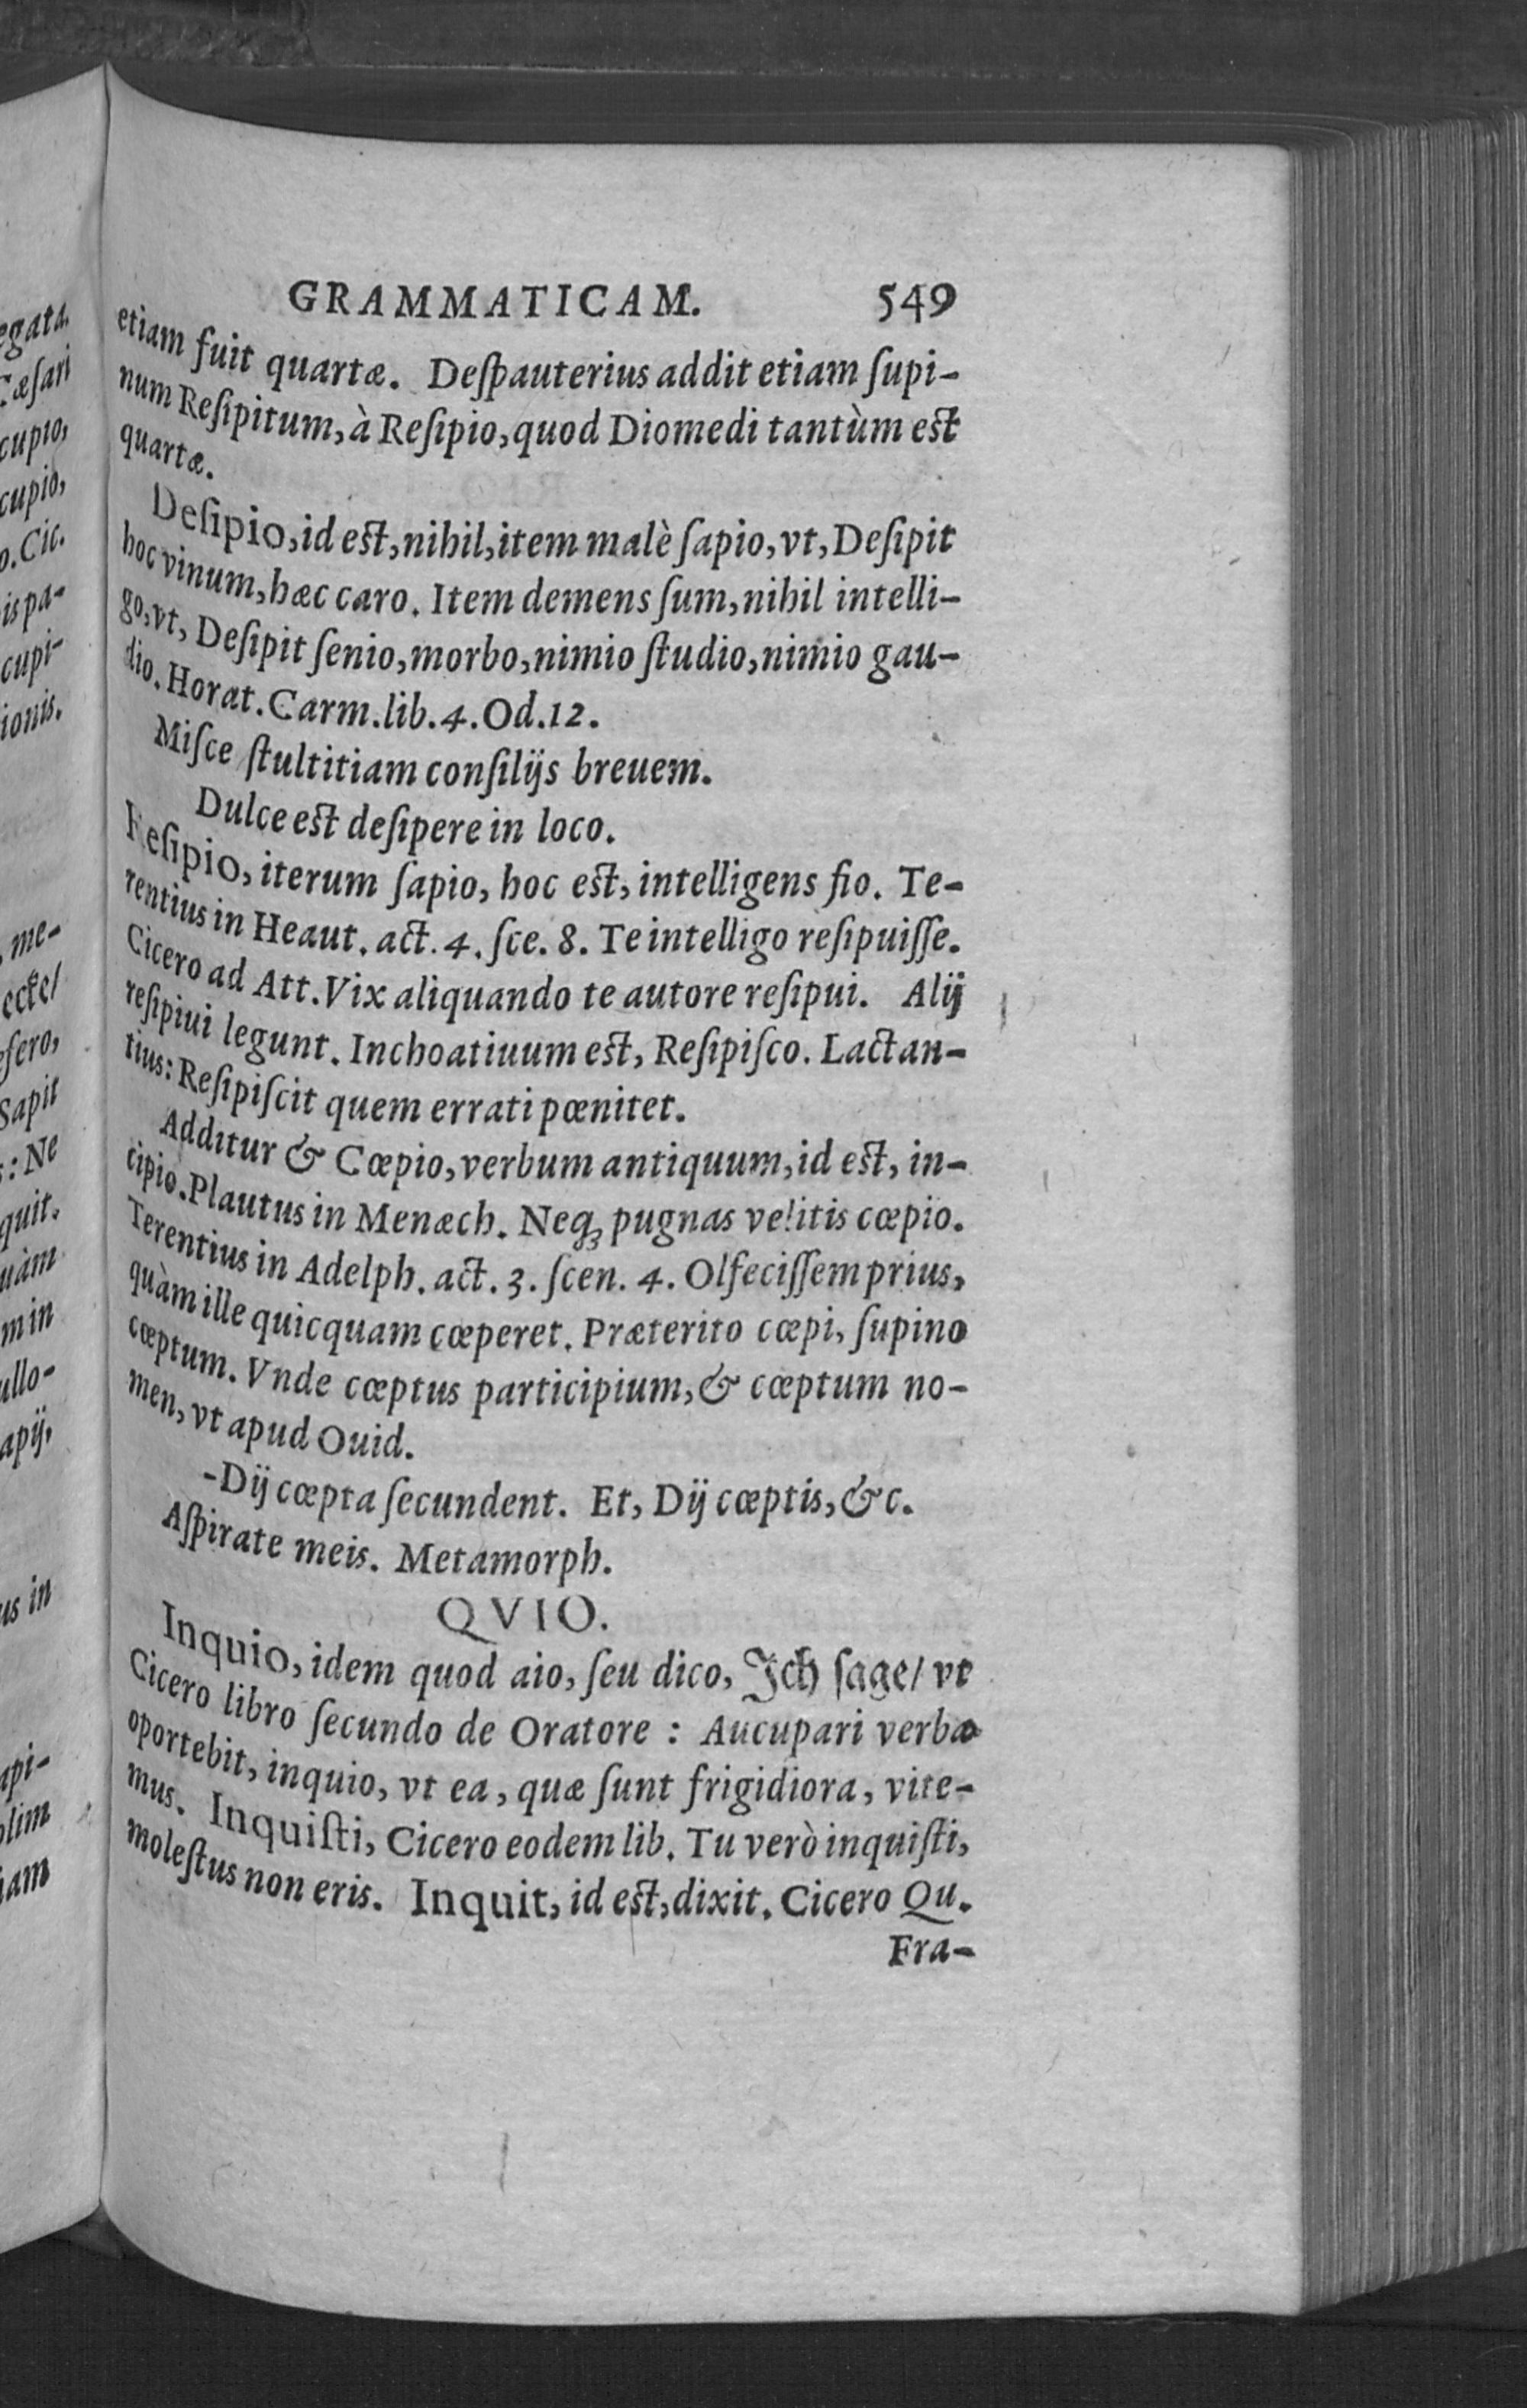 GRAMMATICAM. 549
etiam fuit quartæ. Deſpauterius addit etiam ſupi-
num Reſipitum, à Reſipio, quod Diomedi tantùm est
quartæ.
Deſipio, id est, nihil, item malè ſapio, vt, Deſipit
hoc vinum, hæc caro. Item demens ſum, nihil intelli-
go, vt, Deſipit ſenio, morbo, nimio ſtudio, nimio gau-
dio. Horat. Carm. lib. 4. Od. 12.
Miſce ſtultitiam conſilijs breuem.
Dulce est deſipere in loco.
Reſipio, iterum ſapio, hoc est, intelligens fio. Te-
rentius in Heaut. act. 4. ſce. 8. Te intelligo reſipuiſſe.
Cicero ad Att. Vix aliquando te autore reſipui. Alij
reſipiui legunt. Inchoatiuum est, Reſipiſco. Lactan-
tius: Reſipiſcit quem errati pœnitet.
Additur & Cœpio, verbum antiquum, id est, in-
cipio. Plautus in Menæch. Neq; pugnas velitis cœpio.
Terentius in Adelph. act. 3. ſcen. 4. Olfeciſſem prius,
quàm ille quicquam cœperet. Præterito cœpi, ſupino
cœptum. Vnde cœptus participium, & cœptum no-
men, vt apud Ouid.
-Dij cœpta ſecundent. Et, Dij cœptis, &c.
Aſpirate meis. Metamorph.
QVIO.
Inquio, idem quod aio, ſeu dico, Ich ſage/ vt
Cicero libro ſecundo de Oratore : Aucupari verba
oportebit, inquio, vt ea, quæ ſunt frigidiora, vite-
mus. Inquiſti, Cicero eodem lib. Tu verò inquiſti,
moleſtus non eris. Inquit, id est, dixit. Cicero Qu.
Fra-